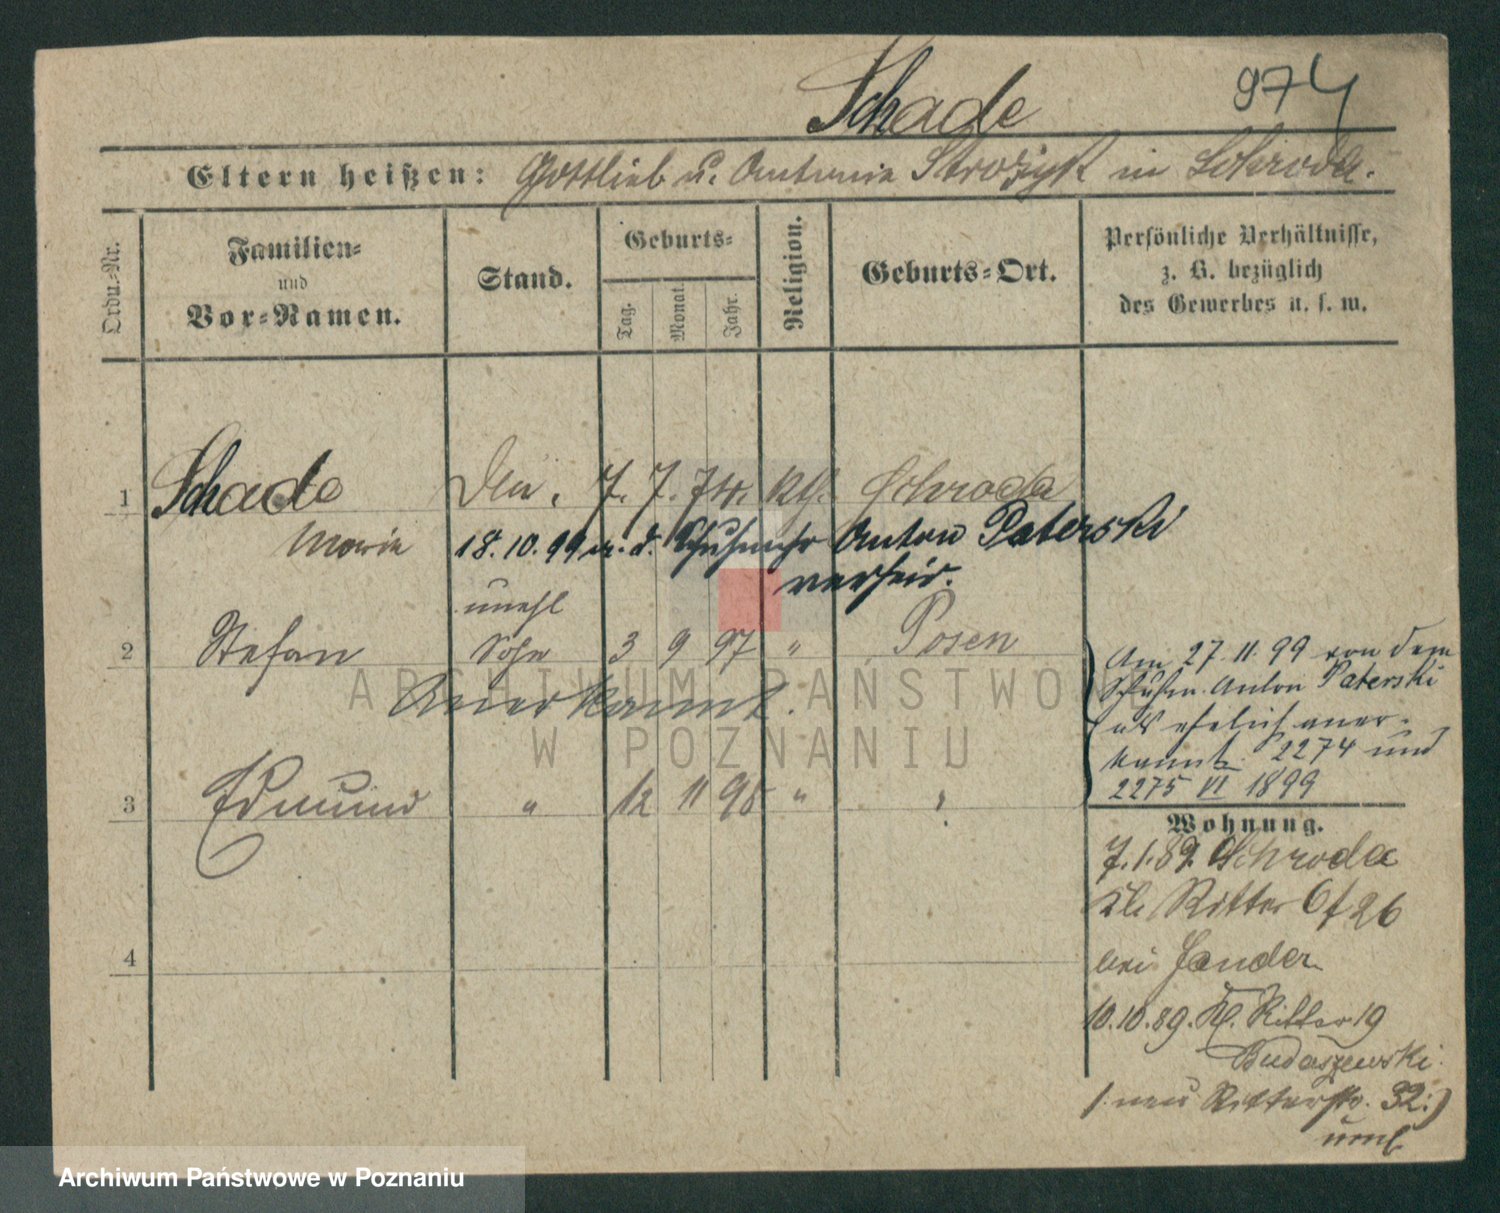 974
Schade
Eltern heißen: Gottlieb u. Antonie Strozyk in Schroda.
Ordn.-Nr.
Familien-
und
Vor-Namen.
Stand.
Geburts-
Tag.
Monat.
Jahr.
Religion.
Geburts-Ort.
Persönliche Verhältnisse,
z. B. bezüglich
des Gewerbes u. s. w.
1 Schade 7. 7. Schroda
Marie 18. 10. 99 m. d. Schuhmchr Anton Paterski
verheir.
unehl
2 Stefan Sohn 3 9 97 " Posen
Anerkannt.
Am 27. 11. 99 von dem
Schuhm. Anton Paterski
als ehelich aner-
kannt. 2274 und
2275 VI 1899
3 Edmund " 12 11 98 " "
Wohnung.
7. 1. 89. Schroda
Kl. Ritter 26
bei Jander
10. 10. 89. Kl. Ritter 19
Budaszewski
/: neu Ritterstr. 32 :/
4
ARCHIWUM PAŃSTWOWE
W POZNANIU
Archiwum Państwowe w Poznaniu